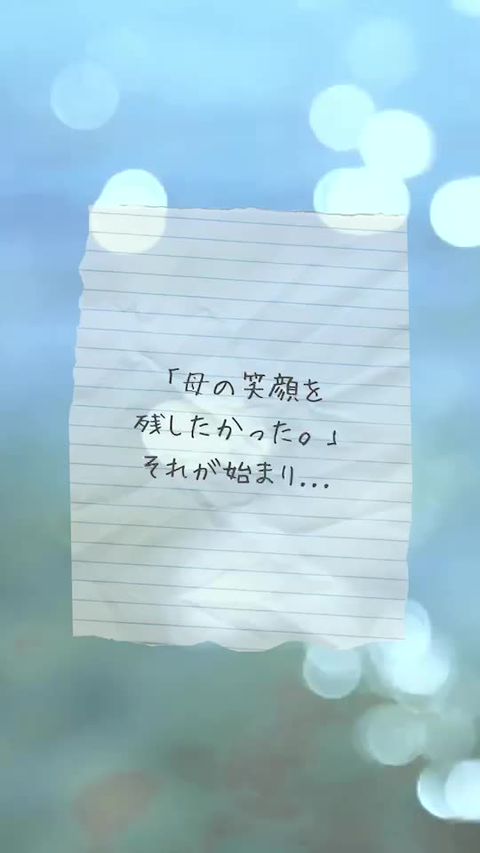 「母の笑顔を
残したかった。」
それが始まり...